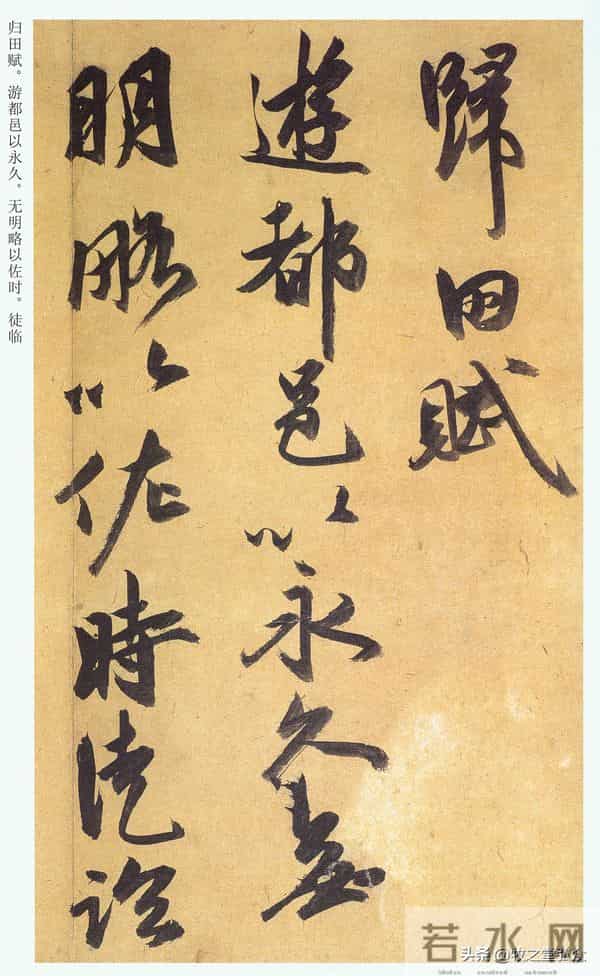 歸田賦
遊都邑以永久無
明略以佐時徒臨
归田赋。游都邑以永久。无明略以佐时。徒临
若水网
头条 @牧之堂